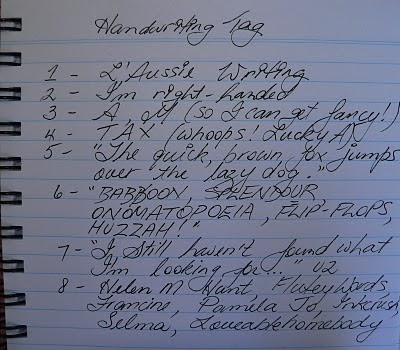 Handwriting Tag
1 - L'Aussie Writing
2 - I'm right-handed
3 - A, M (so I can get fancy!)
4 - TAX (whoops! Lucky A)
5 - "The quick, brown, fox jumps
over the lazy dog."
6 - "BABBOON, SPLENDOUR
ONOMATOPOEIA, FLIP-FLOPS,
HUZZAH!"
7 - "I still haven't found what
I'm looking for.." U2
8 - Helen M Hunt, FluteyWords
Francine, Pamila Jo,
Selma, Loveablehomebody